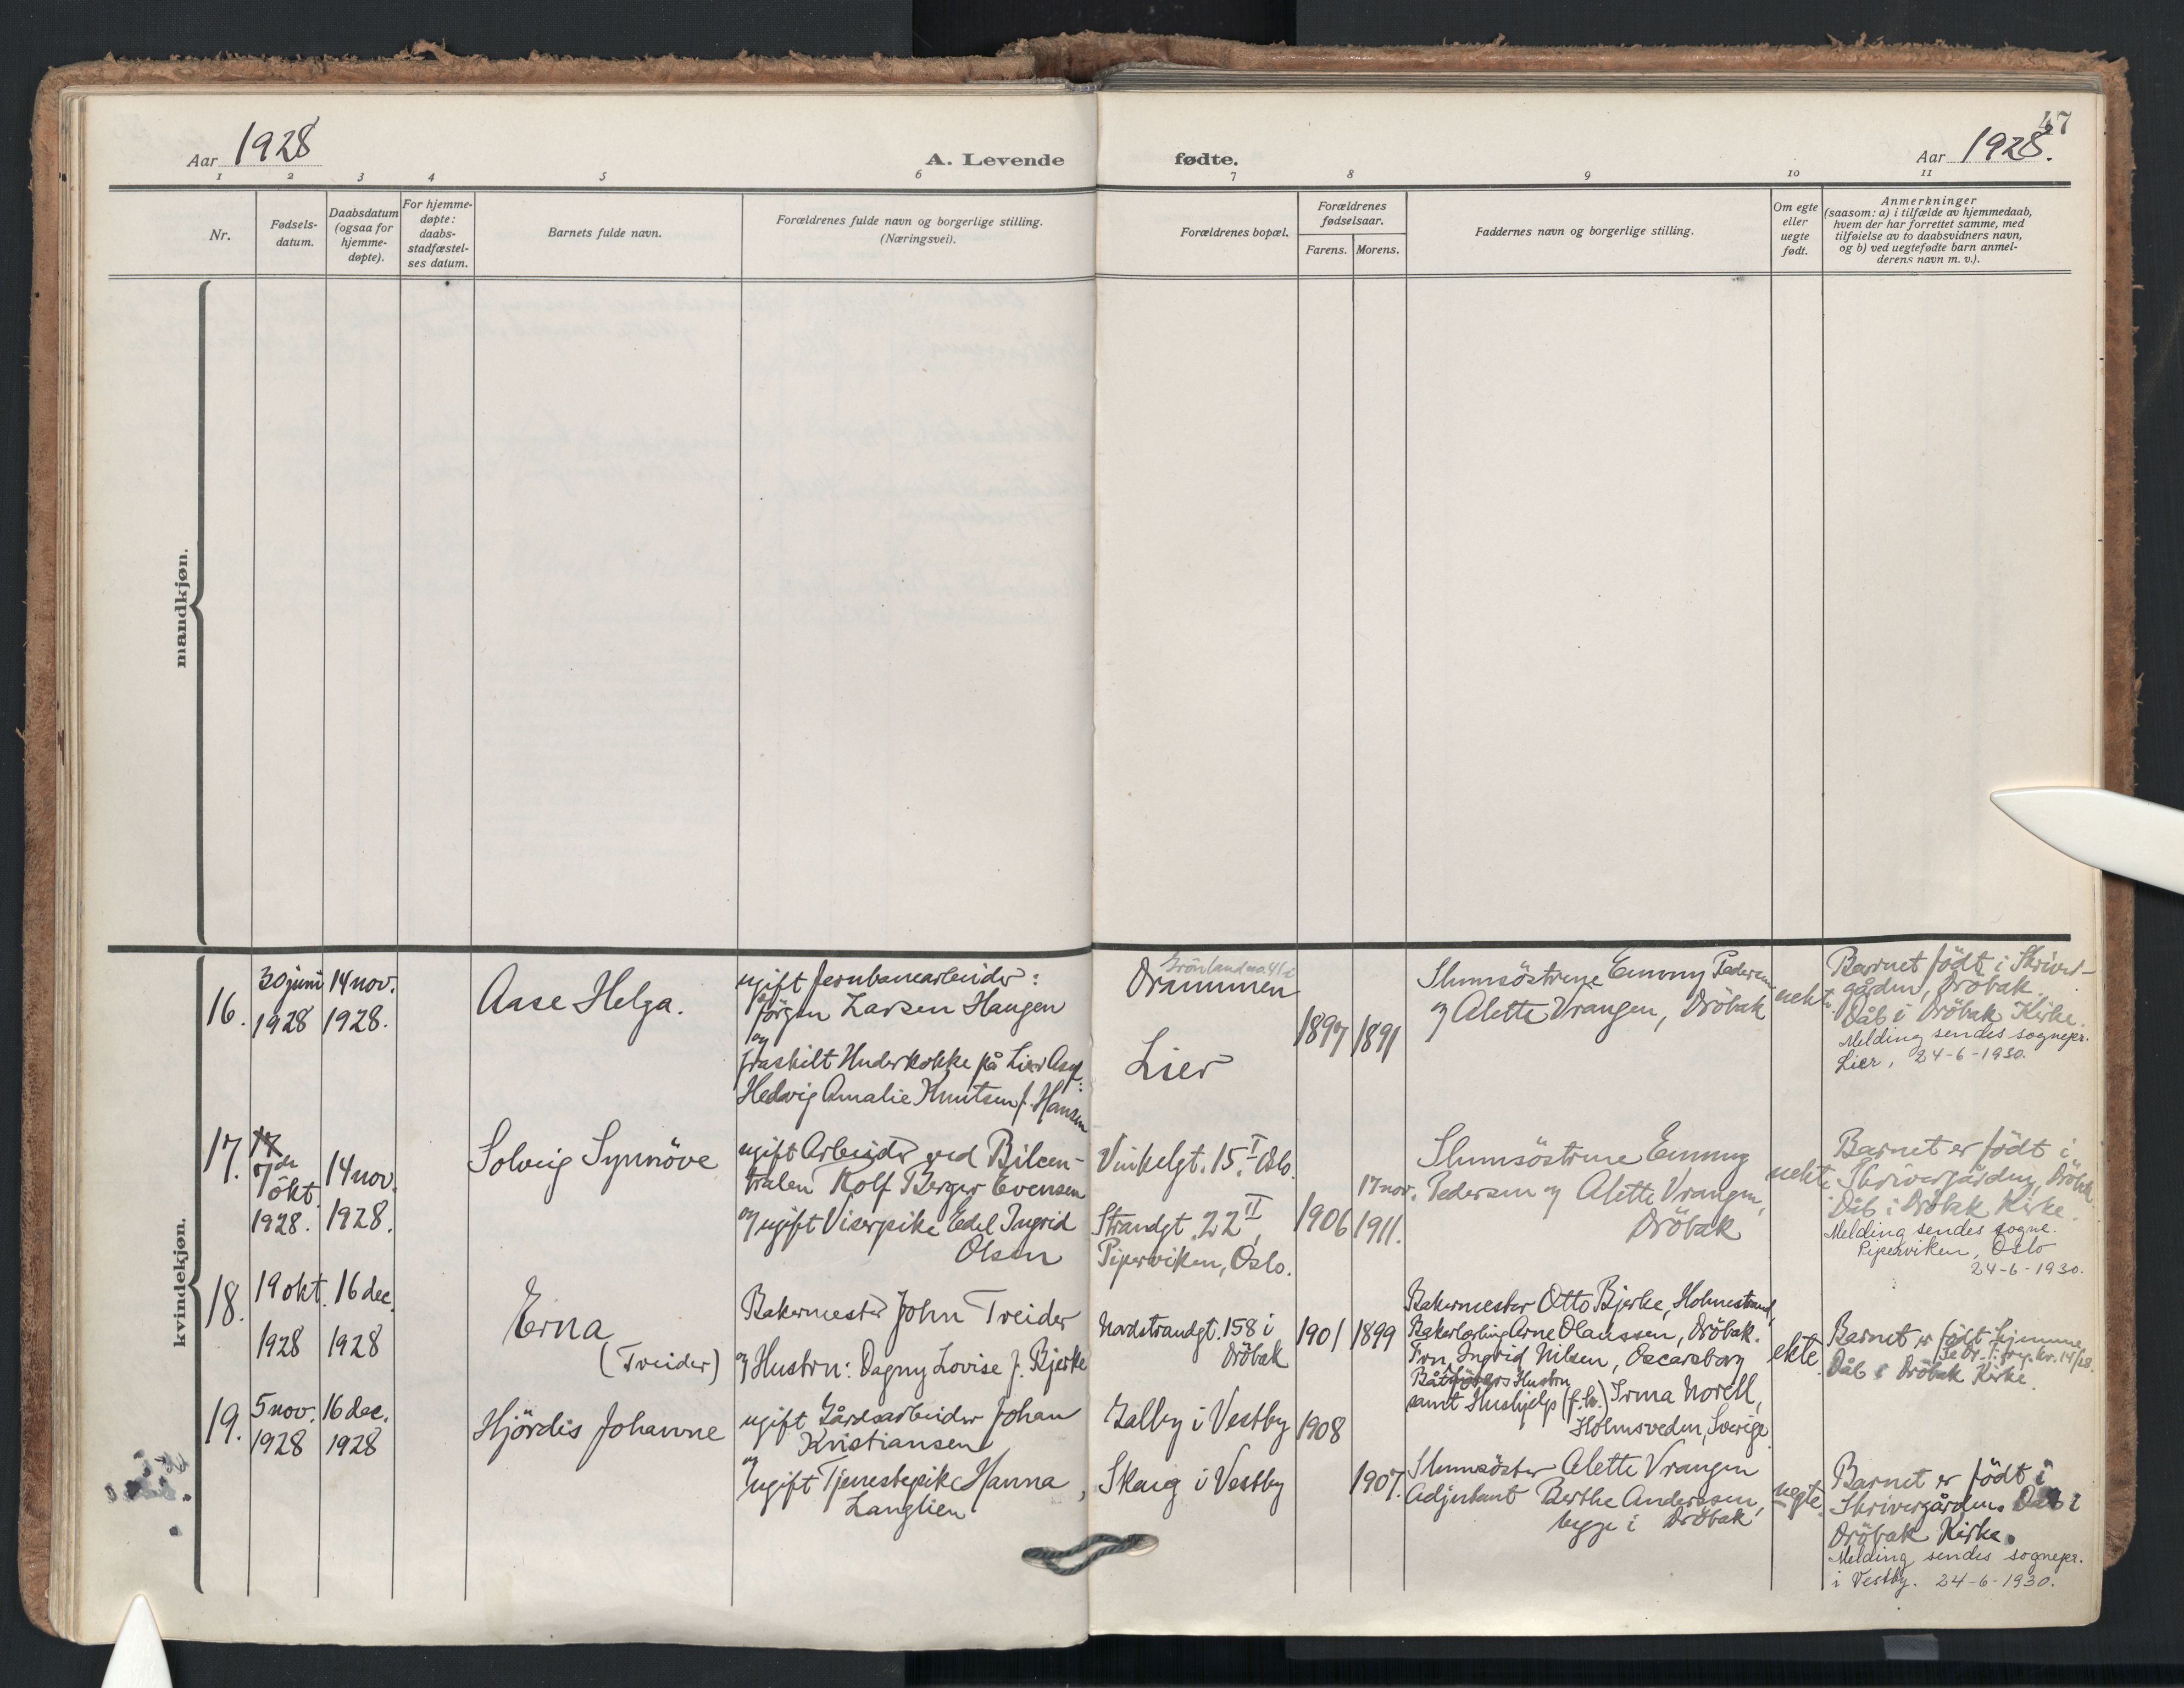 47
Aar 1928
A. Levende
fødte.
Aar 1928.
1 2 3 4 5 6 7 8 9 10 11
Nr.
Fødsels-
datum.
Daabsdatum
(ogsaa for
hjemme-
døpte).
For hjemme-
døpte:
daabs-
stadfæstel-
ses datum.
Barnets fulde navn.
Forældrenes fulde navn og borgerlige stilling.
(Næringsvei).
Forældrenes bopæl.
Forældrenes
fødselsaar.
Farens. Morens.
Faddernes navn og borgerlige stilling.
Om egte
eller
uegte
født.
Anmerkninger
(saasom: a) i tilfælde av hjemmedaab,
hvem der har forrettet samme, med
tilføielse av to daabsvidners navn,
og b) ved uegtefødte barn anmel-
derens navn m. v.).
mandkjøn.
kvindekjøn.
16.
30 juni
1928
14 nov.
1928.
Aase Helga.
ugift Jernbanearbeider:
Jörgen Larsen Haugen
og
fraskilt Underkokke på Lier Asyl:
Hedvig Amalie Knutsen f. Hansen
Grönland no. 41
Drammen
Lier
1897
1891
Slumsöstrene Emmy Pedersen
og Alette Vrangen, Dröbak
uekte
Barnet födt i Skriver-
gården, Dröbak.
Dåb i Dröbak Kirke.
Melding sendes sognepr.
Lier, 24-6-1930.
17.
7de
okt.
1928.
14 nov.
1928.
Solveig Synnöve
ugift Arbeider ved Bilcen-
tralen Rolf Berger Evensen
og ugift Viserpike Edel Ingrid
Olsen
Vinkelgt. 15 I Oslo.
Strandgt. 22 II,
Piperviken, Oslo.
1906
17 nov.
1911.
Slumsöstrene Emmy
Pedersen og Alette Vrangen,
Dröbak
uekte
Barnet er födt i
Skrivergården, Dröbak.
Dåb i Dröbak Kirke.
Melding sendes sogne.
Piperviken, Oslo
24-6-1930.
18.
19 okt.
1928
16 dec.
1928
Erna
(Treider)
Bakermester John Treider
og Hustru: Dagny Lovise f. Bjerke
Nordstrandgt. 158 i
Dröbak
1901
1899
Bakermester Otto Bjerke, Holmestrand,
Bakerlærling Arne Olaussen, Dröbak.
Fru Ingrid Nilsen, Oscarsborg
Båtförers Hustru
samt Hushjelp (f.h.) Irma Norell,
Holmsveden, Sverige.
ekte
Barnet er födt hjemme
Se Dr. f. reg. nr. 14/28.
Dåb i Dröbak Kirke.
19.
5 nov.
1928
16 dec.
1928
Hjördis Johanne
ugift Gårdsarbeider Johan
Kristiansen
og
ugift Tjenestepike Hanna
Langlien
Galby i Vestby
Skaug i Vestby
1908
1907.
Slumsöster Alette Vrangen
Adjutant Berthe Anderssen,
begge i Dröbak
uegte
Barnet er födt i
Skrivergården. Dåb i
Dröbak Kirke.
Melding sendes sognepr.
i Vestby. 24-6-1930.